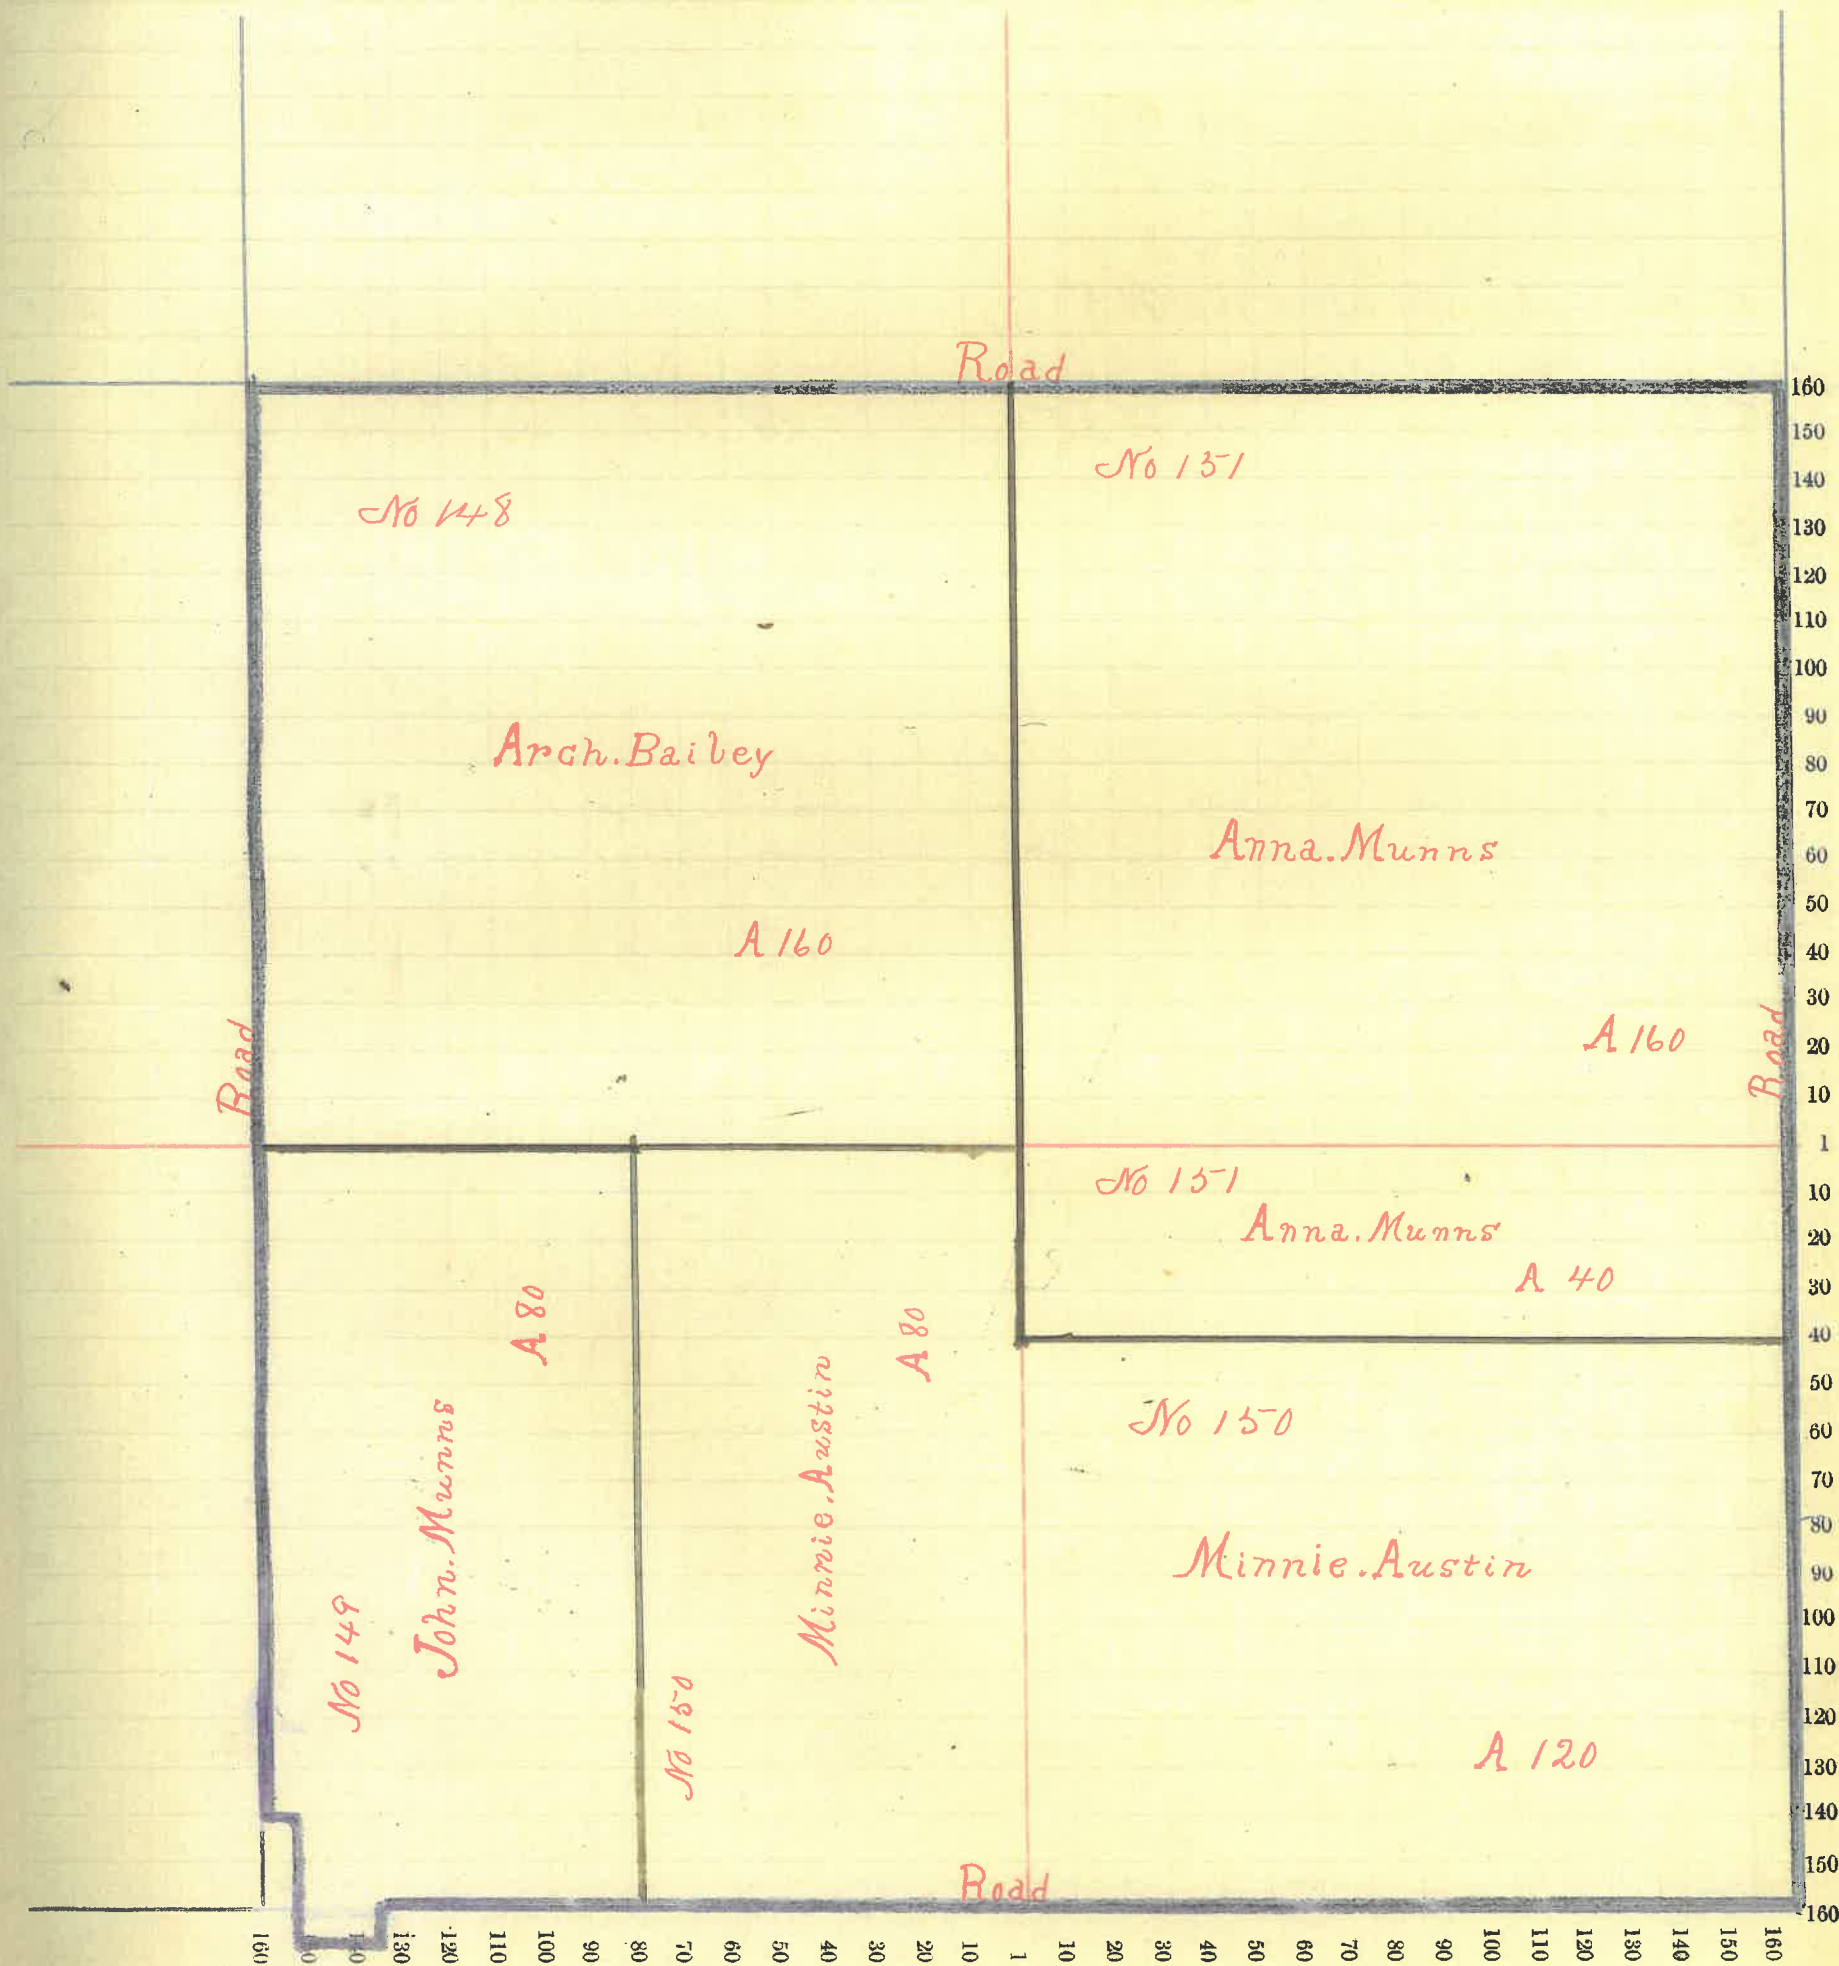 Road
No 148
Arch. Bailey
A 160
No 151
Anna. Munns
A 160
Road
Road
No 151
Anna. Munns
A 40
No 149
John. Munns
A 80
No 150
Minnie. Austin
A 80
No 150
Minnie. Austin
A 120
Road
160
150
140
130
120
110
100
90
80
70
60
50
40
30
20
10
1
10
20
30
40
50
60
70
80
90
100
110
120
130
140
150
160
160 130 120 110 100 90 80 70 60 50 40 30 20 10 1 10 20 30 40 50 60 70 80 90 100 110 120 130 140 150 160